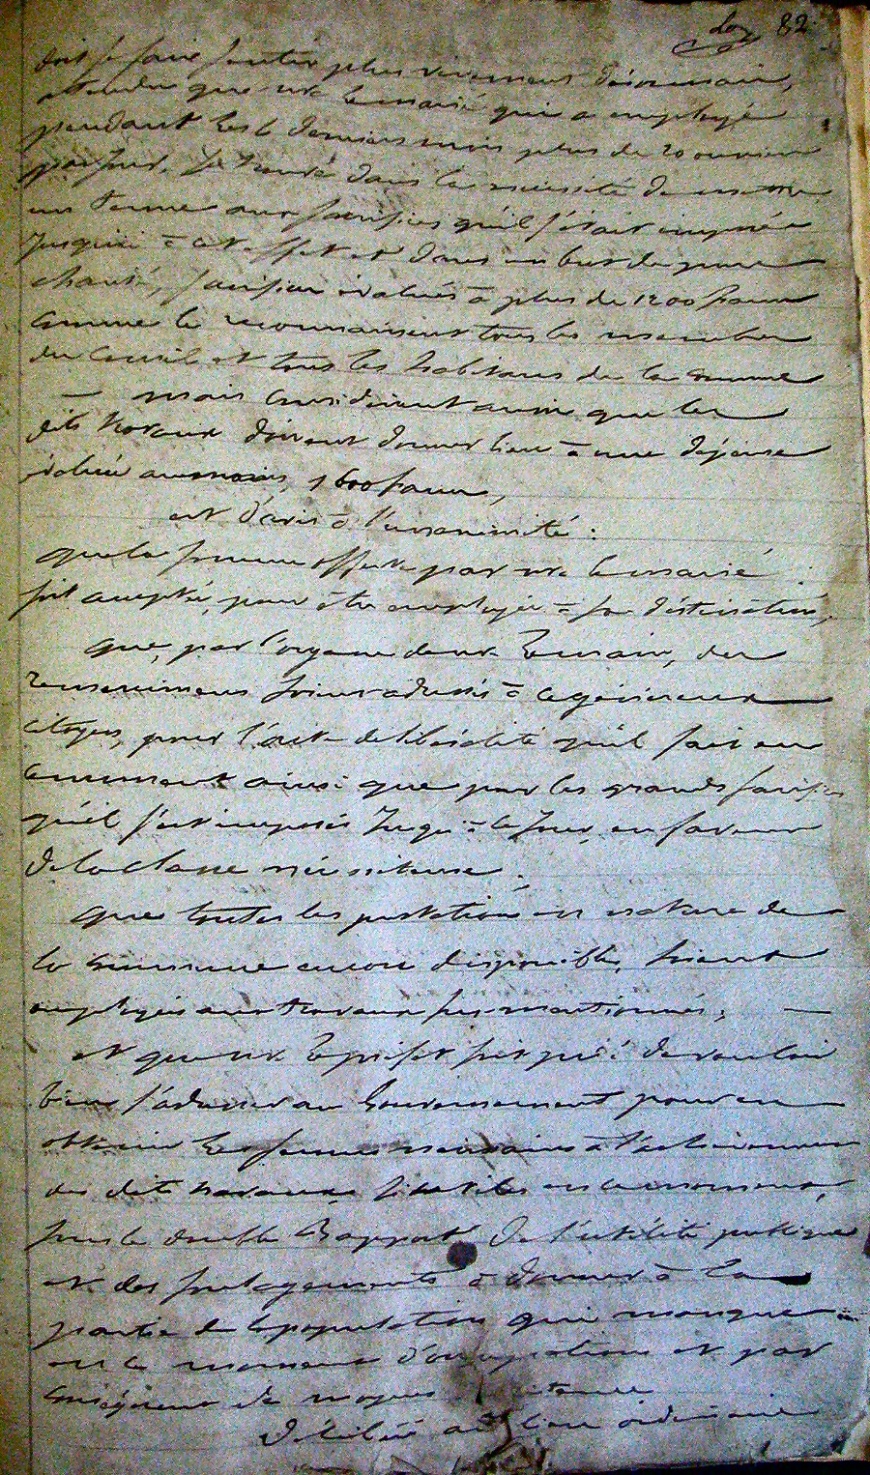 82
doit se faire sentir plus vivement désormais,
attendu que mr le mairié qui a employé
pendant les 6 derniers mois plus de 20 ouvriers
par jour, se trouve dans la nécessité de mettre
un terme aux sacrifices qu'il s'était imposés
jusqu'ici à cet effet et dans un but de pure
charité, sacrifices évalués à plus de 1200 francs
comme le reconnaissent tous les membres
du conseil et tous les habitans de la commune
— mais considérant aussi que les
dits travaux doivent donner lieu à une dépense
évaluée au moins, 1600 francs,
est d'avis à l'unanimité :
que la somme offerte par mr le mairié
soit acceptée, pour être employée à sa destination,
que, par l'organe de mr le maire, des
remercimens soient adressés à ce généreux
citoyen, pour l'acte de libéralité qu'il fait en
ce moment ainsi que pour les grands sacrifices
qu'il s'est imposés jusqu'à ce jour, en faveur
de la classe nécessiteuse ;
que toutes les prestations en nature de
la commune encore disponibles, soient
employées aux travaux sus-mentionnés ; —
et que mr le préfet soit prié de vouloir
bien s'adresser au Gouvernement pour en
obtenir les sommes nécessaires à l'achèvement
des dits travaux, si utiles en ce moment,
sous le double Rapport de l'utilité publique
et des soulagements à donner à la
partie de la population qui manque
en ce moment d'occupations et par
conséquent de moyens
Délibéré au lieu ordinaire